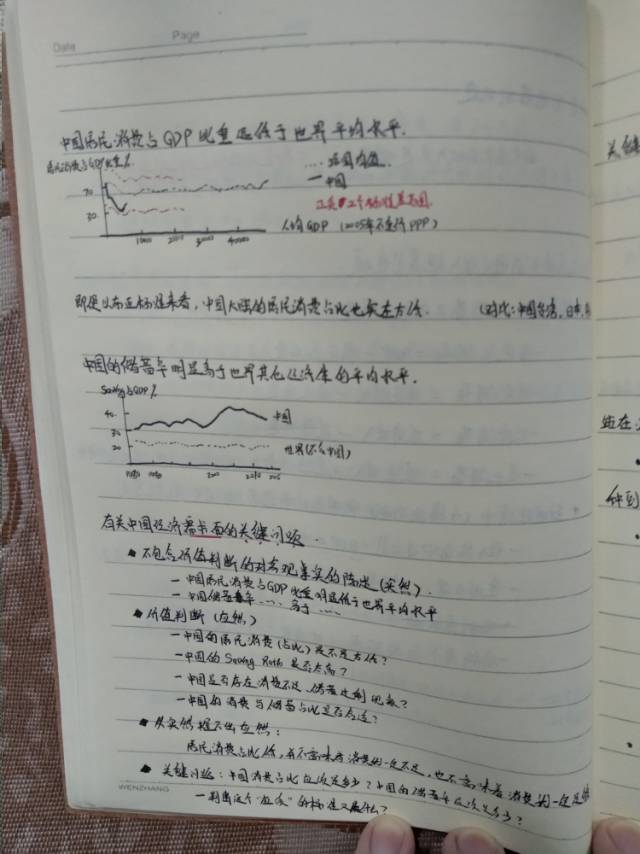 Date Page
中国居民消费占GDP比重远低于世界平均水平.
居民消费占GDP比重%
.... 各国均值
— 中国
正负2个标准差范围.
70
30
1000 2000 3000 40000
人均GDP (2005年不变价PPP)
即便以东亚标准来看, 中国大陆的居民消费占比也实在太低. (对比: 中国台湾, 日本,
中国的储蓄率明显高于世界其他经济体的平均水平.
Saving占GDP%
40
30
20
中国
世界(不含中国)
1980 1990 2000 2010 2015
有关中国经济需求面的关键问题.
• 不包含价值判断的对客观事实的陈述 (实然).
— 中国居民消费占GDP比重明显低于世界平均水平
— 中国储蓄率 ...... 高于 ......
• 价值判断 (应然)
— 中国的居民消费(占比)是不是太低?
— 中国的Saving Rate是否太高?
— 中国是否存在消费不足、储蓄过剩现象?
— 中国的消费与储蓄占比是否合适?
• 从实然推不出应然:
居民消费占比低, 并不意味着消费就一定不足, 也不意味着消费就一定是
• 关键问题: 中国消费占比应该是多少? 中国的储蓄率应该是多少?
— 判断这个"应该"的标准又是什么?
WENZHANG
关键